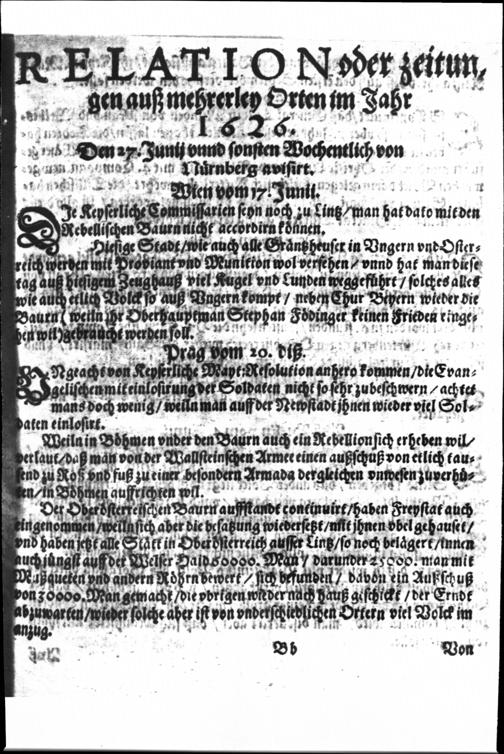 RELATION oder zeitun,
gen auß mehrerley Orten im Jahr
1626.
Den 27. Junij vnnd sonsten Wochentlich von
Nürnberg avisirt.
Wien vom 17. Junii.
DIe Keyserliche Commissarien seyn noch zu Lintz / man hat dato mit den
Rebellischen Baurn nicht accordirn können.
Hiesige Stadt / wie auch alle Gräntzheuser in Vngern vnd Oster-
reich werden mit Proviant vnd Munition wol versehen / vnnd hat man diese
tag auß hiesigem Zeughauß viel Kugel vnd Lunden weggeführt / solches alles
wie auch etlich Volck so auß Vngern kompt / neben Chur Beyern wieder die
Bauren ( weiln jhr Oberhauptman Stephan Födinger keinen Frieden einge-
hen wil) gebraucht werden soll.
Prag vom 20. diß.
VNgeacht von Keyserliche Mayt: Resolution anhero kommen / die Evan-
gelischen mit einlosirung der Soldaten nicht so sehr zubeschwern / achtet
mans doch wenig / weiln man auff der Newstadt jhnen wieder viel Sol-
daten einlosirt.
Weiln in Böhmen vnder den Baurn auch ein Rebellion sich erheben wil /
verlaut / daß man von der Wallsteinschen Armee einen außschuß von etlich tau-
send zu Roß vnd fuß zu einer besondern Armada dergleichen vnwesen zuverhü-
ten / in Böhmen auffrichten wil.
Der Oberösterreischen Baurn auffstandt continuirt / haben Freystat auch
eingenommen / weiln sich aber die besatzung wiedersetzt / mit jhnen vbel gehauset /
vnd haben jetzt alle Stätt in Oberösterreich ausser Lintz / so noch belägert / innen
auch jüngst auff der Welser Haid 60000. Man / darunder 25000. man mit
Mußqueten vnd andern Röhrn bewert / sich befunden / davon ein Außschuß
von 30000. Man gemacht / die vbrigen wieder nach hauß geschickt / der Erndt
abzuwarten / wieder solche aber ist von vnderschiedlichen Ortern viel Volck im
anzug.
Bb Von